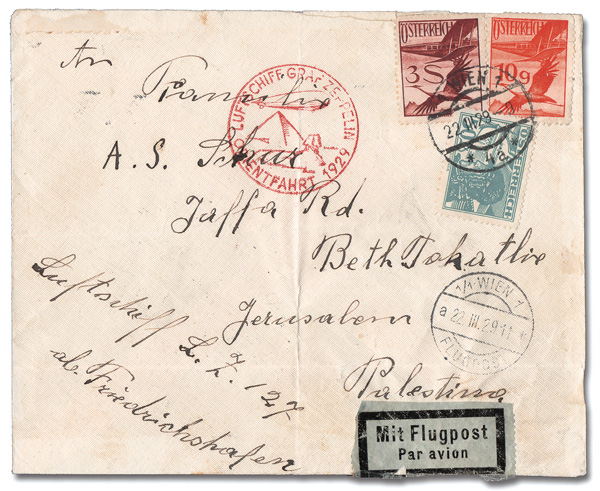 ÖSTERREICH
3S
ÖSTERREICH
10g
ÖSTERREICH
WIEN
22.III.29
* 4a
LUFTSCHIFF GRAF ZEPPELIN
ORIENTFAHRT 1929
An Familie
A. S. Schur
Jaffa Rd.
Beth Tokatlie
Jerusalem
Palestina
Luftschiff
L. Z. 127
ab Friedrichshafen
1/1 WIEN 1
a 22.III.29.11
FLUGPOST
Mit Flugpost
Par avion